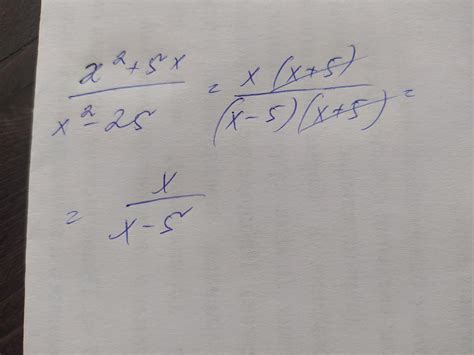 x²+5x / x²-25 = x(x+5) / (x-5)(x+5) =
= x / x-5